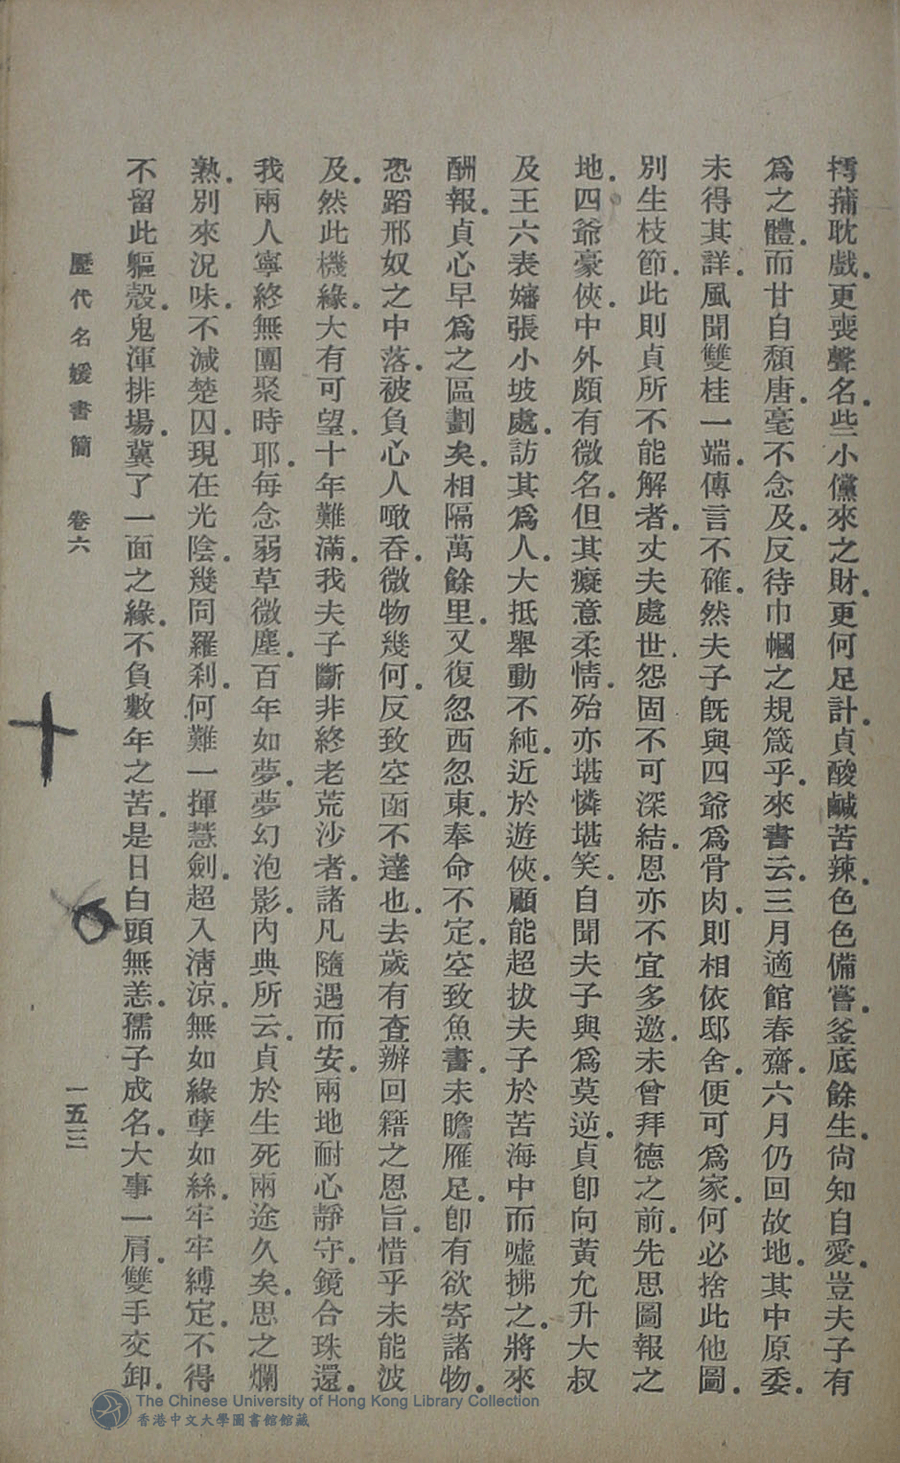 摴蒱耽戲。更喪聲名。些小儻來之財。更何足計。貞酸鹹苦辣。色色備嘗。釜底餘生。尙知自愛。豈夫子有
爲之體。而甘自頹唐。毫不念及。反待巾幗之規箴乎。來書云。三月適館春齋。六月仍回故地。其中原委。
未得其詳。風聞雙桂一端。傳言不確。然夫子旣與四爺爲骨肉。則相依邸舍。便可爲家。何必捨此他圖。
別生枝節。此則貞所不能解者。丈夫處世。怨固不可深結。恩亦不宜多邀。未曾拜德之前。先思圖報之
地。四爺豪俠。中外頗有微名。但其癡意柔情。殆亦堪憐堪笑。自聞夫子與爲莫逆。貞卽向黃允升大叔
及王六表嬸張小坡處。訪其爲人。大抵舉動不純。近於遊俠。顧能超拔夫子於苦海中而噓拂之。將來
酬報。貞心早爲之區劃矣。相隔萬餘里。又復忽西忽東。奉命不定。空致魚書。未瞻雁足。卽有欲寄諸物。
恐蹈邢奴之中落。被負心人噉吞。微物幾何。反致空函不達也。去歲有查辦回籍之恩旨。惜乎未能波
及。然此機緣。大有可望。十年難滿。我夫子斷非終老荒沙者。諸凡隨遇而安。兩地耐心靜守。鏡合珠還。
我兩人寧終無團聚時耶。每念弱草微塵。百年如夢。夢幻泡影。內典所云。貞於生死兩途久矣。思之爛
熟。別來況味。不減楚囚。現在光陰。幾同羅刹。何難一揮慧劍。超入淸涼。無如緣孽如絲。牢牢縛定。不得
不留此軀殼。鬼渾排場。冀了一面之緣。不負數年之苦。是日白頭無恙。孺子成名。大事一肩。雙手交卸。
歷代名媛書簡 卷六 一五三
The Chinese University of Hong Kong Library Collection
香港中文大學圖書館館藏